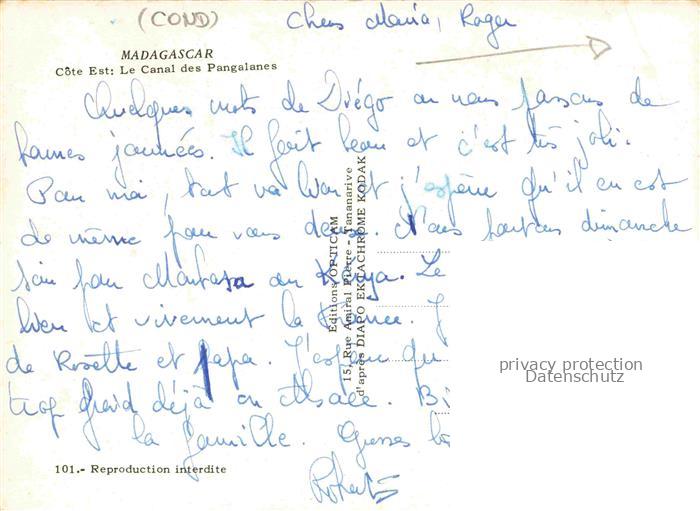 (COND)
Chers Maria, Roger
MADAGASCAR
Côte Est: Le Canal des Pangalanes
Quelques mots de Diégo ou nous passons de
bonnes journées. Il fait beau et c'est très joli.
Pour moi, tout va bien et j'espère qu'il en est
de même pour vous deux. Nous partons dimanche
soir pour Mombasa au Kenya. Le
bien et vivement la France. J
de Rosette et papa. J'espère qu
trop froid déjà en Alsace. Bi
la famille. Grosses
Robert
Editions OPTICAM
15, Rue Amiral Pierre - Tananarive
d'après DIAPO EKTACHROME KODAK
privacy protection
Datenschutz
101.- Reproduction interdite